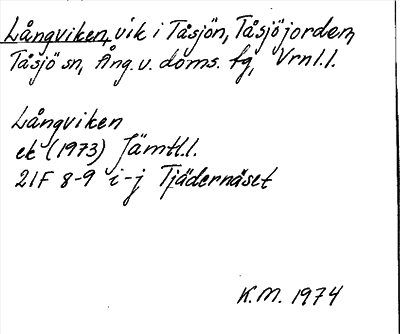 Långviken, vik i Tåsjön, Tåsjöjorden,
Tåsjö sn, Ång. v. doms. fg, Vrnl.l.
Långviken
ek (1973) Jämtl.l.
21F 8-9 i-j Tjädernäset
K.M. 1974